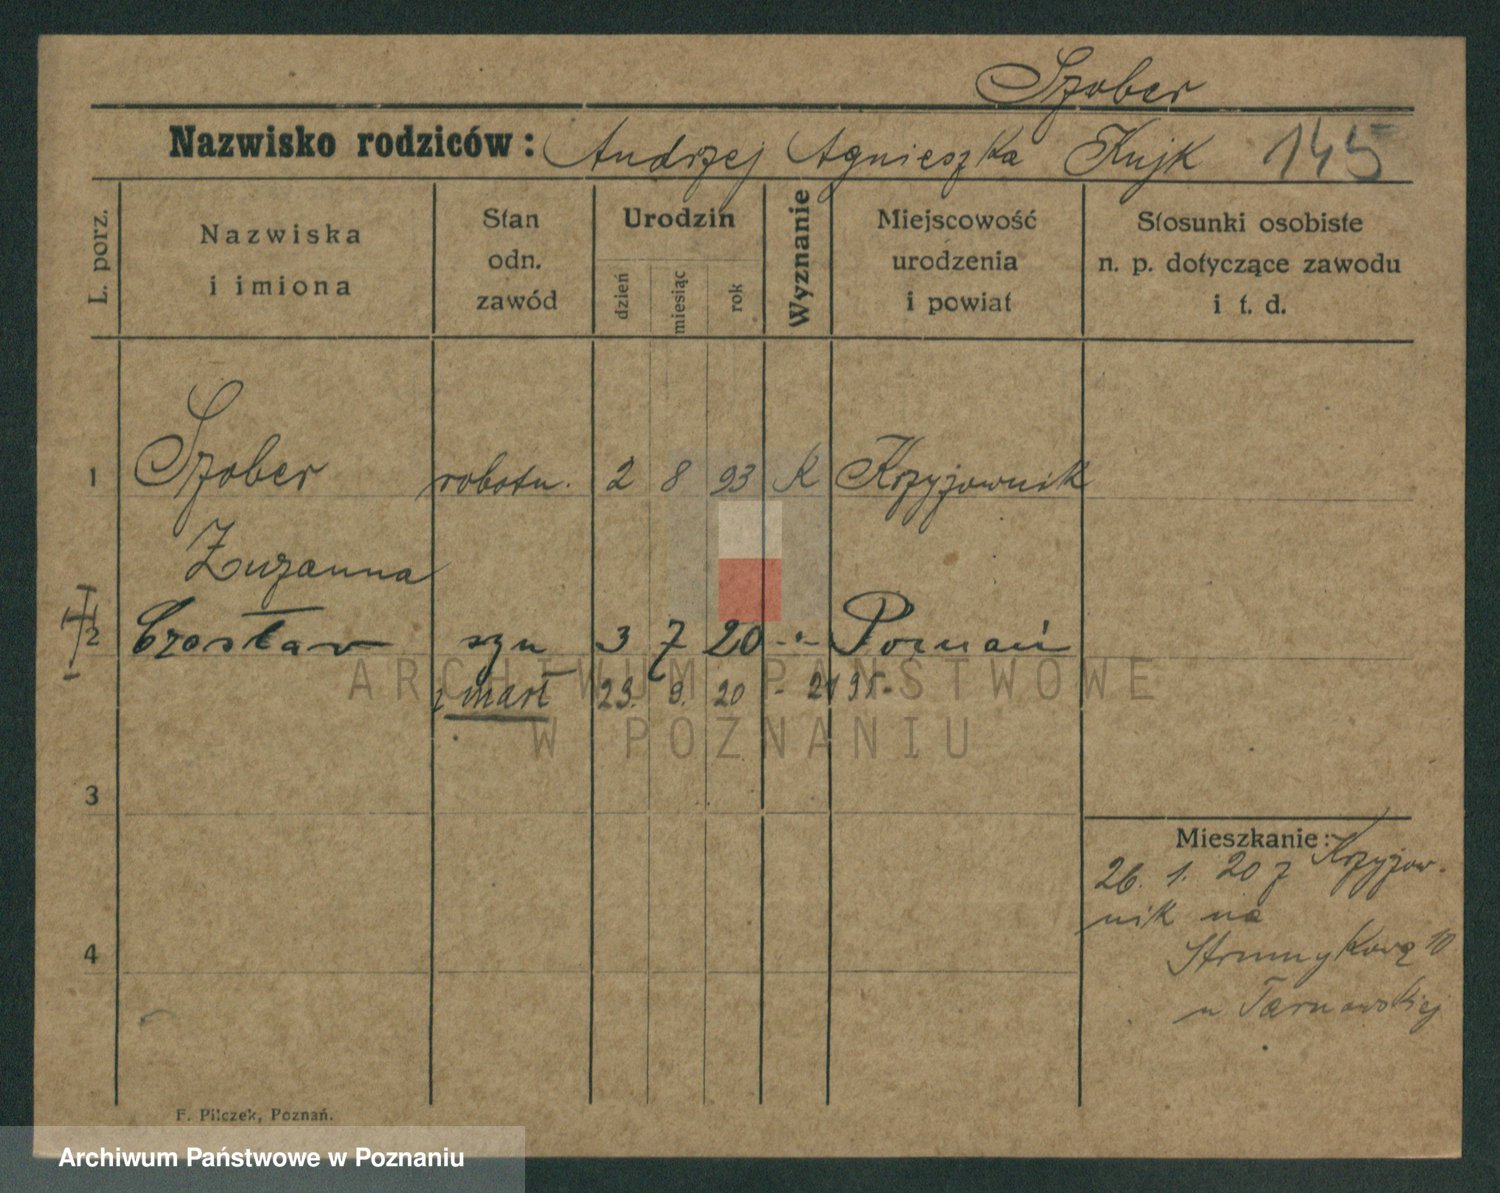 Szober
Nazwisko rodziców: Andrzej Agnieszka Kujk 145
L. porz.
Nazwiska i imiona
Stan odn. zawód
Urodzin
dzień miesiąc rok
Wyznanie
Miejscowość urodzenia i powiat
Stosunki osobiste n. p. dotyczące zawodu i t. d.
1 Szober robotn. 2 8 93 K Krzyżownik
Zuzanna
2 Czesław syn 3 7 20 -"- Poznań
zmarł 23. 9. 20 - 2195-
ARCHIWUM PAŃSTWOWE
W POZNANIU
3
Mieszkanie:
26. 1. 20 z Krzyżow-
nik na
Strumykową 10
u Tarnowskiej
4
F. Pilczek, Poznań.
Archiwum Państwowe w Poznaniu